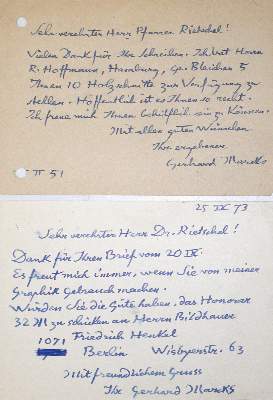 Sehr verehrter Herr Pfarrer Rietschel!
Vielen Dank für Ihr Schreiben. Ich bat Herrn
R. Hoffmann, Hamburg, Gr. Bleichen 5
Ihnen 10 Holzschnitte zur Verfügung zu
stellen. Hoffentlich ist es Ihnen so recht.
Ich freue mich Ihnen behilflich sein zu können.
Mit allen guten Wünschen
Ihr ergebener
Gerhard Marcks
51
25 IX 73
Sehr verehrter Herr Dr. Rietschel!
Dank für Ihren Brief vom 20 IX.
Es freut mich immer, wenn Sie von meiner
Graphik Gebrauch machen.
Würden Sie die Güte haben, das Honorar
32 M zu schicken an Herrn Bildhauer
Friedrich Henkel
1071
Berlin Wisbyerstr. 63
Mit freundlichem Gruss
Ihr Gerhard Marcks